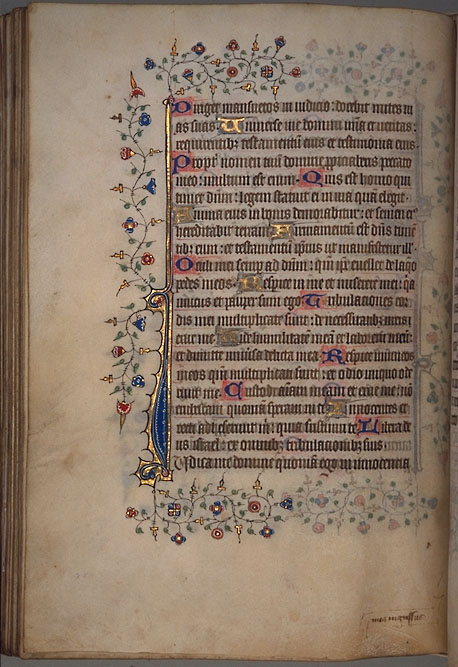 Diriget mansuetos in iudicio: docebit mites ui
as suas Uniuerse uie domini mīa et ueritas:
requirentib; testamentū eius et testimonia eius
Propt̄ nomen tuū domine ppiciaberis peccato
meo: multum est enim Quis est homo qui
timet dūm: legem statuit ei in uia quā elegit
Anima eius in bonis demorabitur: et semen eius
hereditabit terram Firmamentū est dūs timē
tib; eum: et testamentū ipsius ut manifestetur ill
Oculi mei semp ad dūm: qm̄ ip̄e euellet de laqo
pedes meos Respice in me et miserere mei: qia
unicus et pauper sum ego Tribulationes cor
dis mei multiplicate sunt: de necessitatib; meis
erue me Uide humilitatē meā et laborem meū:
et dimitte uniuersa delicta mea Respice inimicos
meos qm̄ multiplicati sunt: et odio iniquo ode
runt me Custodi animam meam et erue me: nō
erubescam quoniam speraui in te Innocentes et
recti adheserunt m̄: quia sustinui te Libera de
us israel: ex omnib; tribulationib; suis
Iudica me domine quoniam ego in innocentia